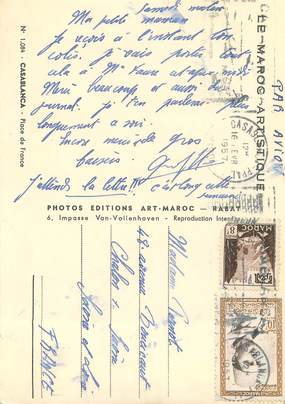 Samedi matin
Ma petite maman
Je reçois à l'instant ton
colis. Je vais porter tout
cela à Mme Faure cet après midi
Merci beaucoup et aussi du
journal. Je t'en parlerai plus
longuement ce soir.
Encore merci de gros
baisers.
J'attends la lettre!!!
PHOTOS EDITIONS ART-MAROC — RABAT
6, Impasse Van-Vollenhoven - Reproduction Inter
N° 1.086 - CASABLANCA - Place de France
LE MAROC ARTISTIQUE
PAR AVION
CASABLANCA
16
195
MAROC
Madame
48 avenue Boucicaut
Chalon s/ Saône
Saône et Loire
FRANCE
MAROC